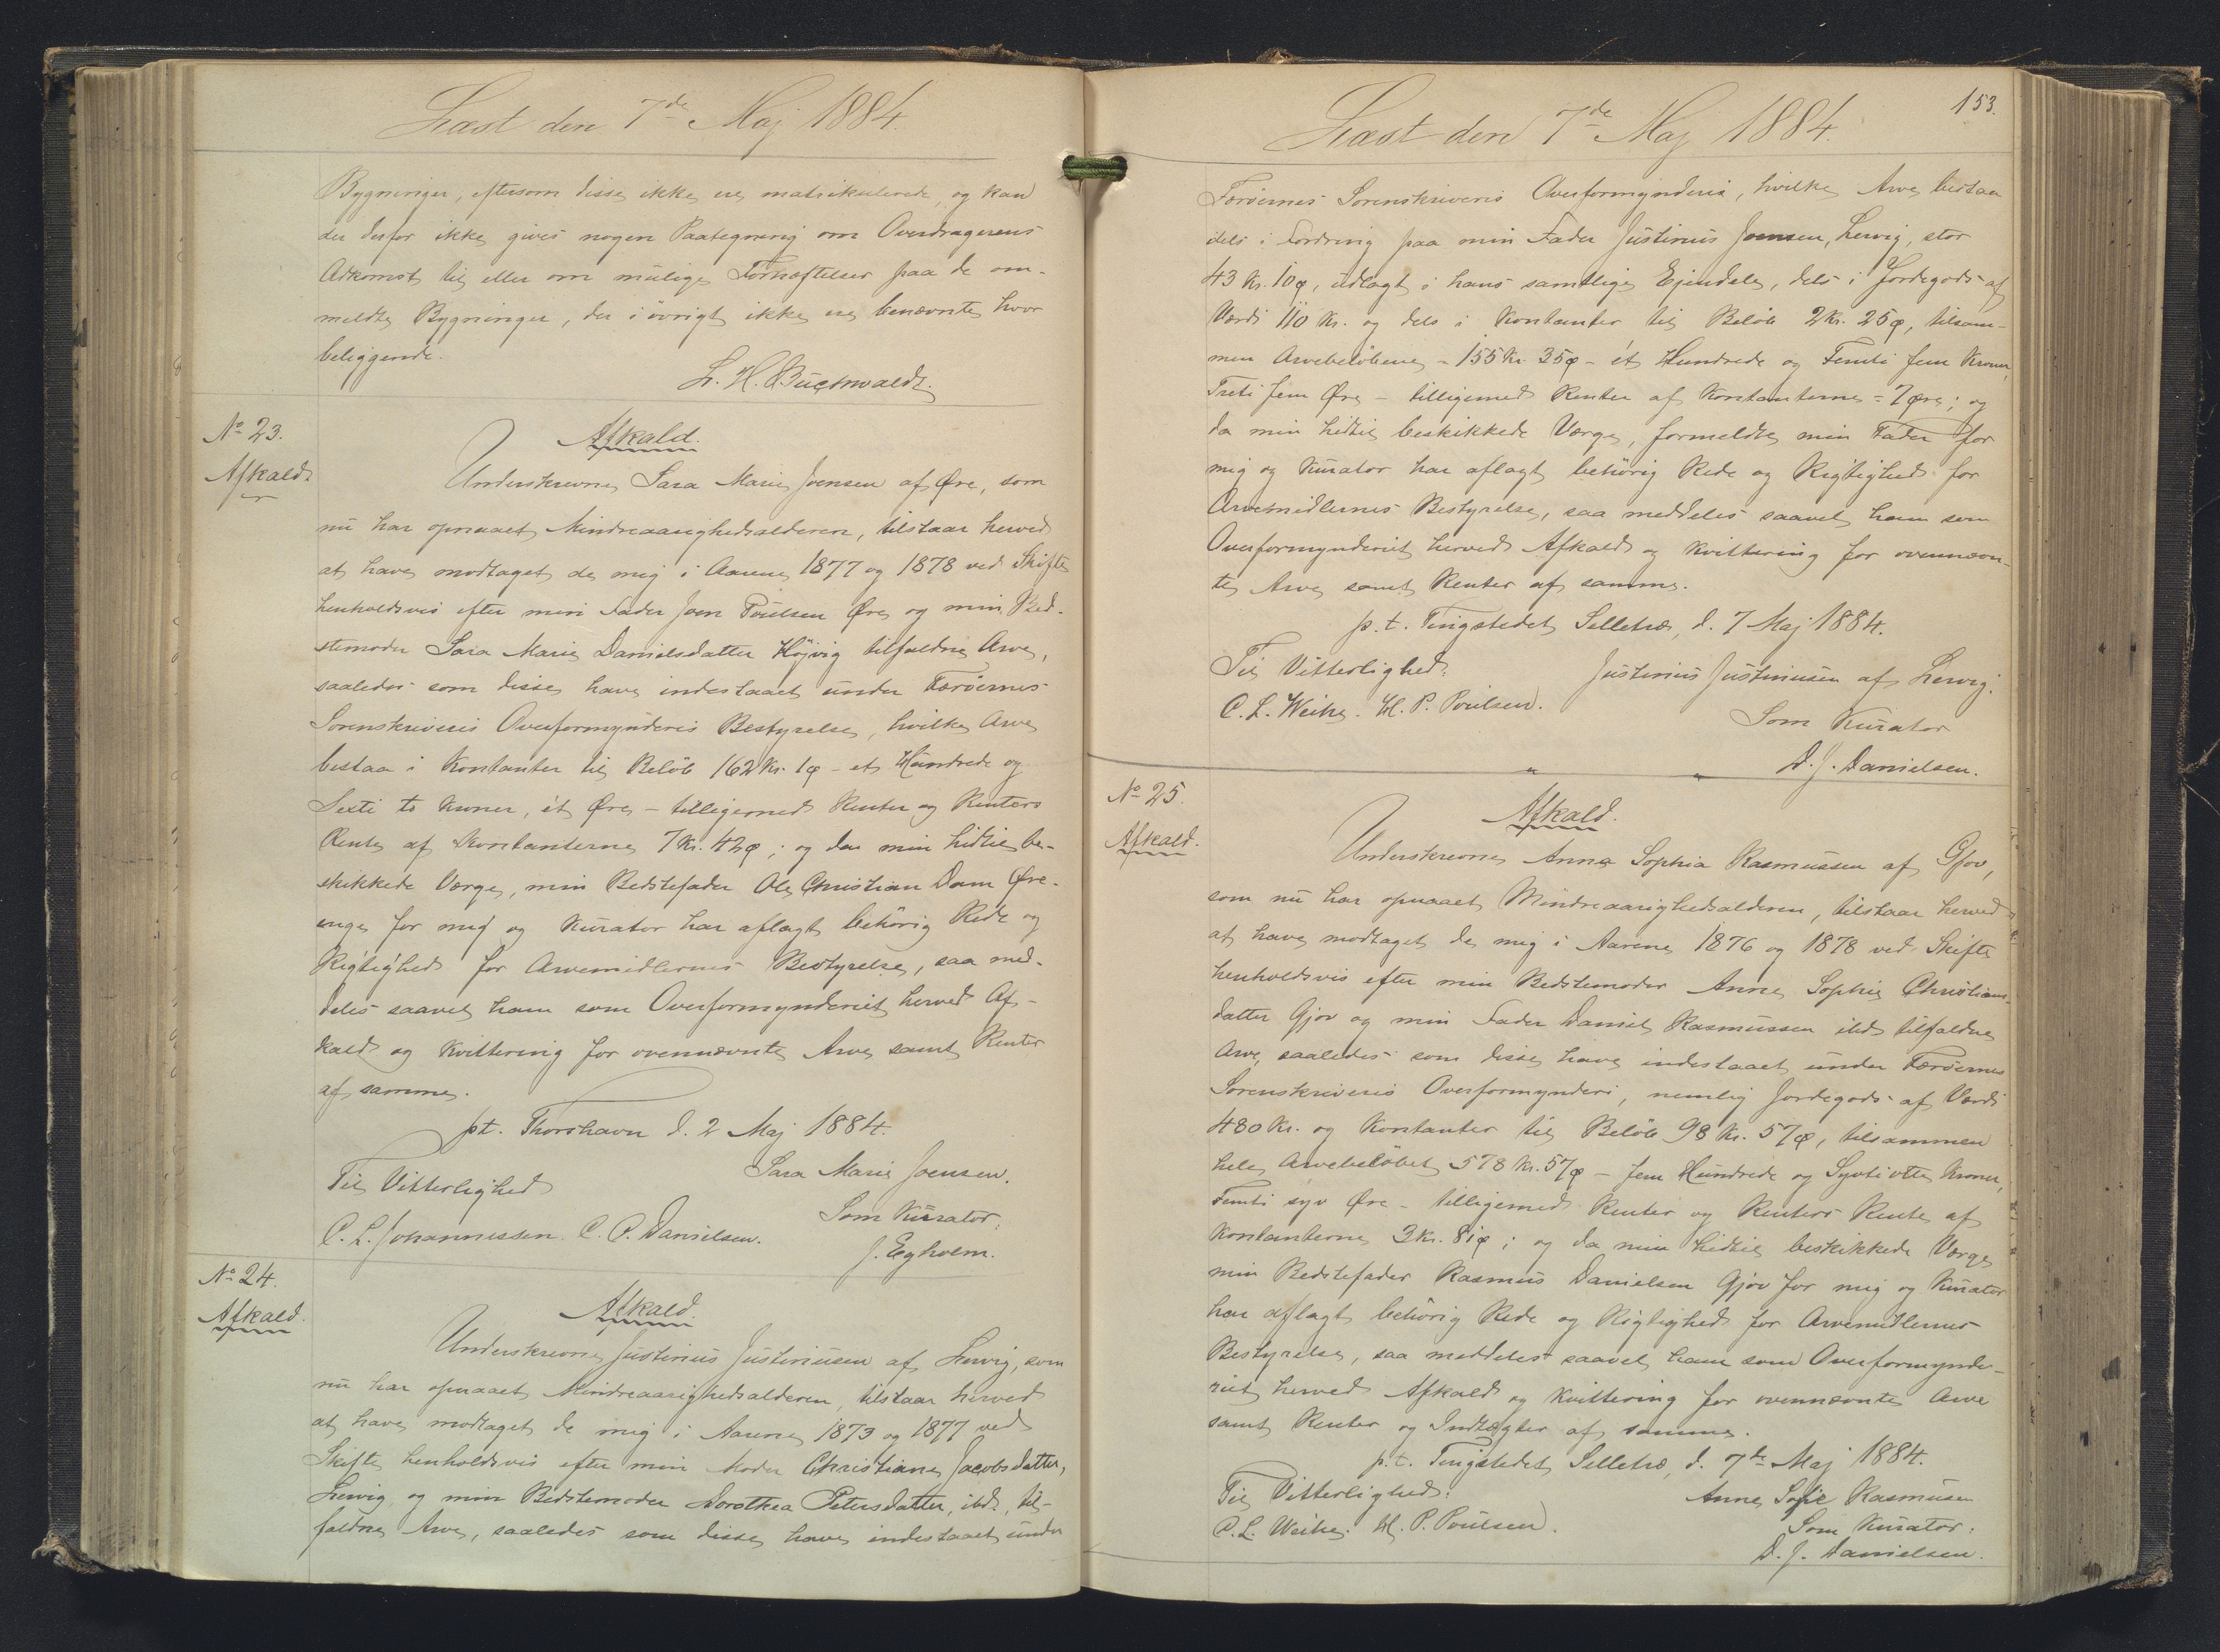 Læst den 7de Maj 1884.
Bygninger, eftersom disse ikke ere matrikulerede, og kan
der derfor ikke gives nogen Paategning om Overdragerens
Adkomst til eller om mulige Forhæftelser paa de om-
meldte Bygninger, der i övrigt ikke ere benævnte hvor
beliggende.
L. H. Buchwaldt.
No 23.
Afkald
Afkald.
Underskrevne Sara Marie Joensen af Øre, som
nu har opnaaet Mindreaarighedsalderen, tilstaar herved
at have modtaget de mig i Aarene 1877 og 1878 ved Skifte
henholdsvis efter min Fader Joen Poulsen Øre og min Bed-
stemoder Sara Marie Danielsdatter Höjvig tilfaldne Arve,
saaledes som disse have indestaaet under Færöernes
Sorenskriveris Overformynderis Bestyrelse, hvilke Arve
bestaa i Kontanter til Belöb 162 Kr. 1ø – et Hundrede og
Sexti to Kroner, ét Øre – tilligemed Renter og Renters
Rente af Kontanterne 7 Kr. 42ø; og da min hidtil be-
skikkede Værge, min Bedstefader Ole Christian Dam Øre-
enge for mig og Kurator har aflagt behörig Rede og
Rigtighed for Arvemidlernes Bestyrelse, saa med-
deles saavel ham som Overformynderiet herved Af-
kald og Kvittering for ovennævnte Arve samt Renter
af samme.
pt. Thorshavn d. 2 Maj 1884.
Til Vitterlighed
Sara Marie Joensen.
C. L. Johannessen. C. P. Danielsen.
Som Kurator:
J. Egholm.
No 24.
Afkald.
Afkald.
Underskrevne Justinus Justinusen af Lervig, som
nu har opnaaet Mindreaarighedsalderen, tilstaar herved
at have modtaget de mig i Aarene 1873 og 1877 ved
Skifte henholdsvis efter min Moder Christiane Jacobsdatter,
Lervig, og min Bedstemoder Dorothea Petersdatter, ibd., til-
faldne Arve, saaledes som disse have indestaaet under
153.
Læst den 7de Maj 1884.
Færöernes Sorenskriveris Overformynderi, hvilke Arve bestaa
dels i Fordring paa min Fader Justinus Joensen, Lervig, stor
43 Kr. 10ø, udlagt i hans samtlige Ejendele, dels i Jordegods af
Værdi 110 Kr. og dels i Kontanter til Belöb 2 Kr. 25ø, tilsam-
men Arvebelöbene – 155 Kr. 35ø – ét Hundrede og Femti fem Kroner,
Treti fem Øre – tilligemed Renter af Kontanterne = 7 Øre; og
da min hidtil beskikkede Værge, formeldte min Fader for
mig og Kurator har aflagt behörig Rede og Rigtighed for
Arvemidlernes Bestyrelse, saa meddeles saavel ham som
Overformynderiet herved Afkald og Kvittering for ovennævn-
te Arve samt Renter af samme.
p. t. Tingstedet Selletræ, d. 7 Maj 1884.
Til Vitterlighed:
Justinus Justinusen af Lervig.
C. L. Weihe. H. P. Poulsen.
Som Kurator
D. J. Danielsen.
No 25.
Afkald.
Afkald.
Underskrevne Anna Sophia Rasmussen af Gjov,
som nu har opnaaet Mindreaarighedsalderen, tilstaar herved
at have modtaget de mig i Aarene 1876 og 1878 ved Skifte
henholdsvis efter min Bedstemoder Anne Sophie Christians-
datter Gjov og min Fader Daniel Rasmussen ibd. tilfaldne
Arve, saaledes som disse have indestaaet under Færöernes
Sorenskriveris Overformynderi, nemlig Jordegods af Værdi
480 Kr. og Kontanter til Belöb 98 Kr. 57ø, tilsammen
hele Arvebelöbet 578 Kr. 57ø – fem Hundrede og Syvti otte Kroner,
Femti syv Øre – tilligemed Renter og Renters Rente af
Kontanterne 3 Kr. 81ø; og da min hidtil beskikkede Værge
min Bedstefader Rasmus Danielsen Gjov for mig og Kurator
har aflagt behörig Rede og Rigtighed for Arvemidlernes
Bestyrelse, saa meddeles saavel ham som Overformynde-
riet herved Afkald og Kvittering for ovennævnte Arve
samt Renter og Indtægter af samme.
p. t. Tingstedet Selletræ, d. 7de Maj 1884.
Til Vitterlighed:
Anne Sofie Rasmusen
C. L. Weihe. H. P. Poulsen.
Som Kurator:
D. J. Danielsen.